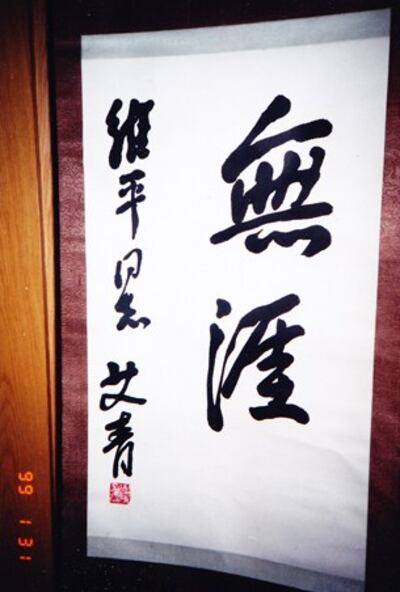 無涯
維平同志 艾青
99 1 31